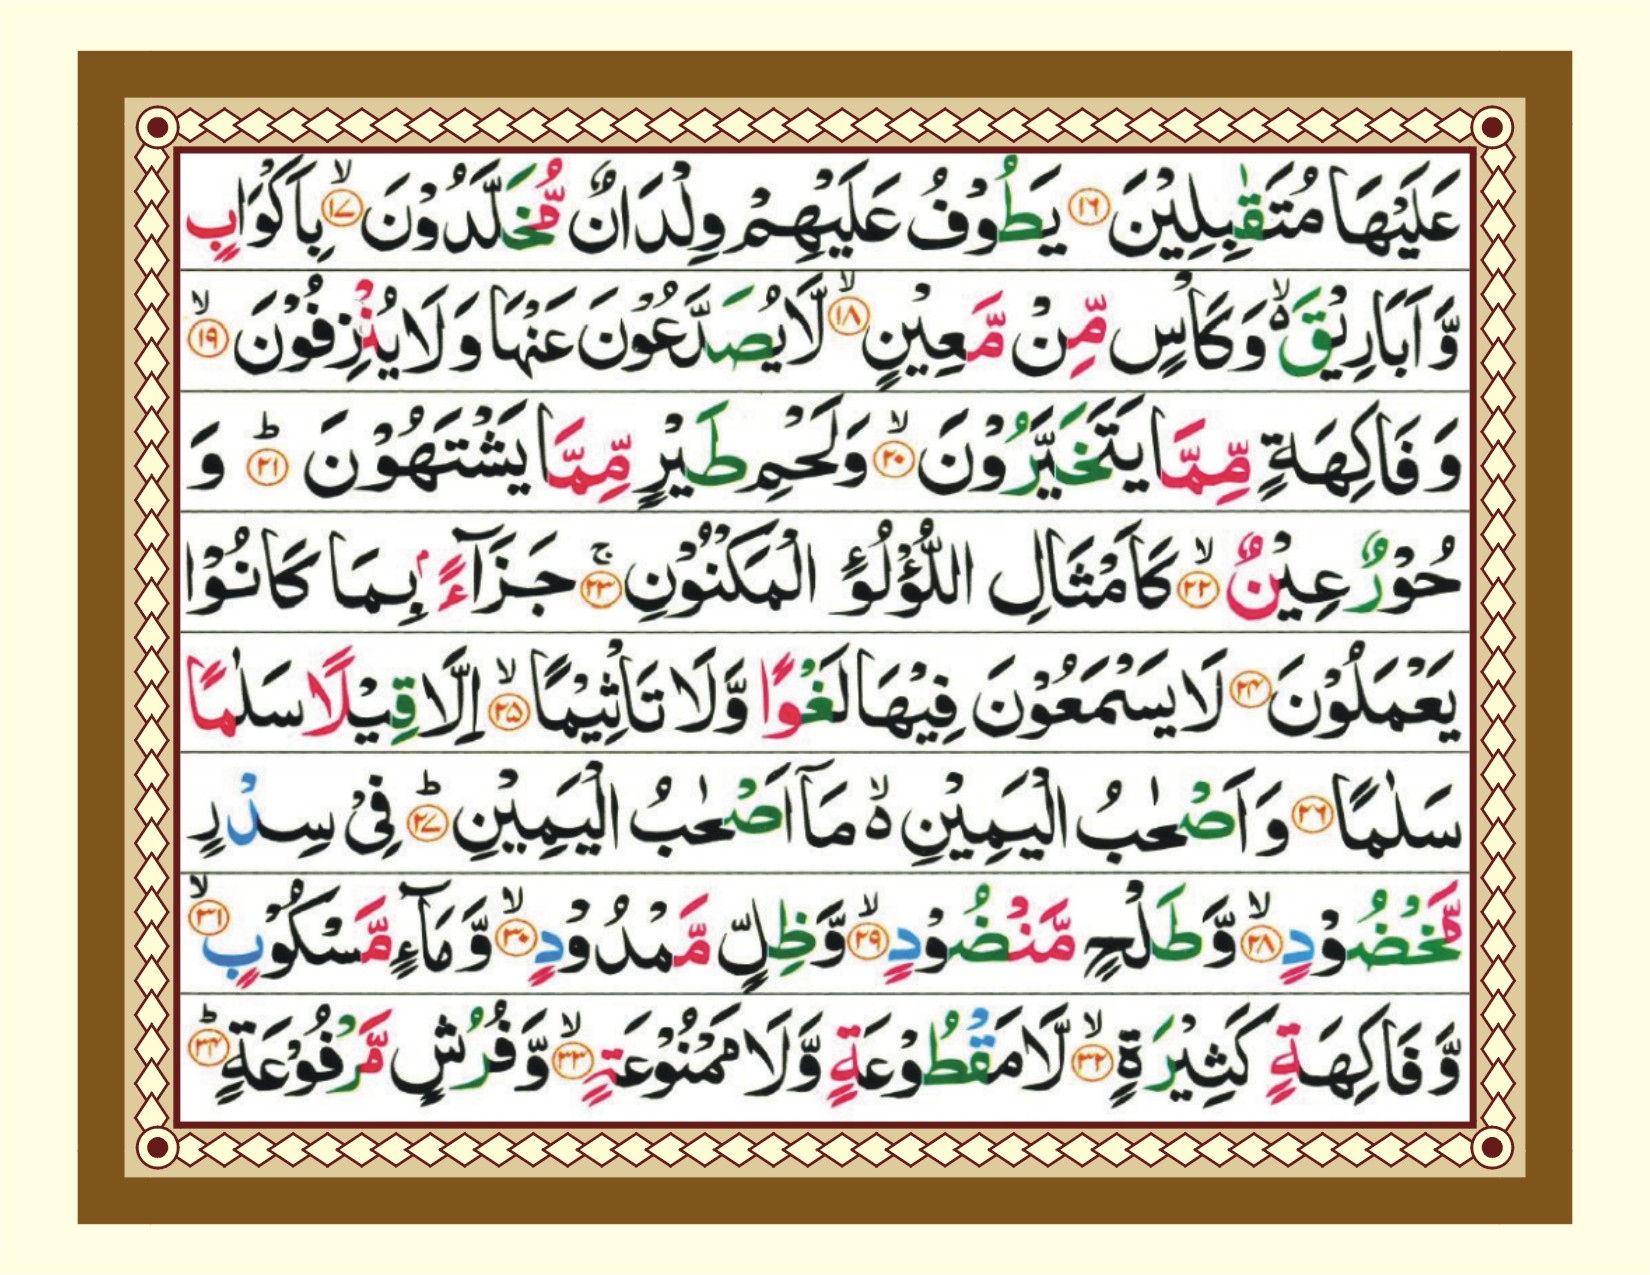 عَلَيْهَا مُتَقٰبِلِيْنَ ۱۶ يَطُوْفُ عَلَيْهِمْ وِلْدَانٌ مُّخَلَّدُوْنَ ۙ۱۷ بِاَكْوَابٍ
وَّاَبَارِيْقَ ۙ۬ وَكَاْسٍ مِّنْ مَّعِيْنٍ ۙ۱۸ لَّا يُصَدَّعُوْنَ عَنْهَا وَلَا يُنْزِفُوْنَ ۙ۱۹
وَفَاكِهَةٍ مِّمَّا يَتَخَيَّرُوْنَ ۙ۲۰ وَلَحْمِ طَيْرٍ مِّمَّا يَشْتَهُوْنَ ؕ۲۱ وَ
حُوْرٌ عِيْنٌ ۙ۲۲ كَاَمْثَالِ اللُّؤْلُؤِ الْمَكْنُوْنِ ۚ۲۳ جَزَآءًۢ بِمَا كَانُوْا
يَعْمَلُوْنَ ۲۴ لَا يَسْمَعُوْنَ فِيْهَا لَغْوًا وَّلَا تَاْثِيْمًا ۙ۲۵ اِلَّا قِيْلًا سَلٰمًا
سَلٰمًا ۲۶ وَاَصْحٰبُ الْيَمِيْنِ ۙ۬ مَاۤ اَصْحٰبُ الْيَمِيْنِ ؕ۲۷ فِىْ سِدْرٍ
مَّخْضُوْدٍ ۙ۲۸ وَّطَلْحٍ مَّنْضُوْدٍ ۙ۲۹ وَّظِلٍّ مَّمْدُوْدٍ ۙ۳۰ وَّمَآءٍ مَّسْكُوْبٍ ۙ۳۱
وَّفَاكِهَةٍ كَثِيْرَةٍ ۙ۳۲ لَّا مَقْطُوْعَةٍ وَّلَا مَمْنُوْعَةٍ ۙ۳۳ وَّفُرُشٍ مَّرْفُوْعَةٍ ؕ۳۴